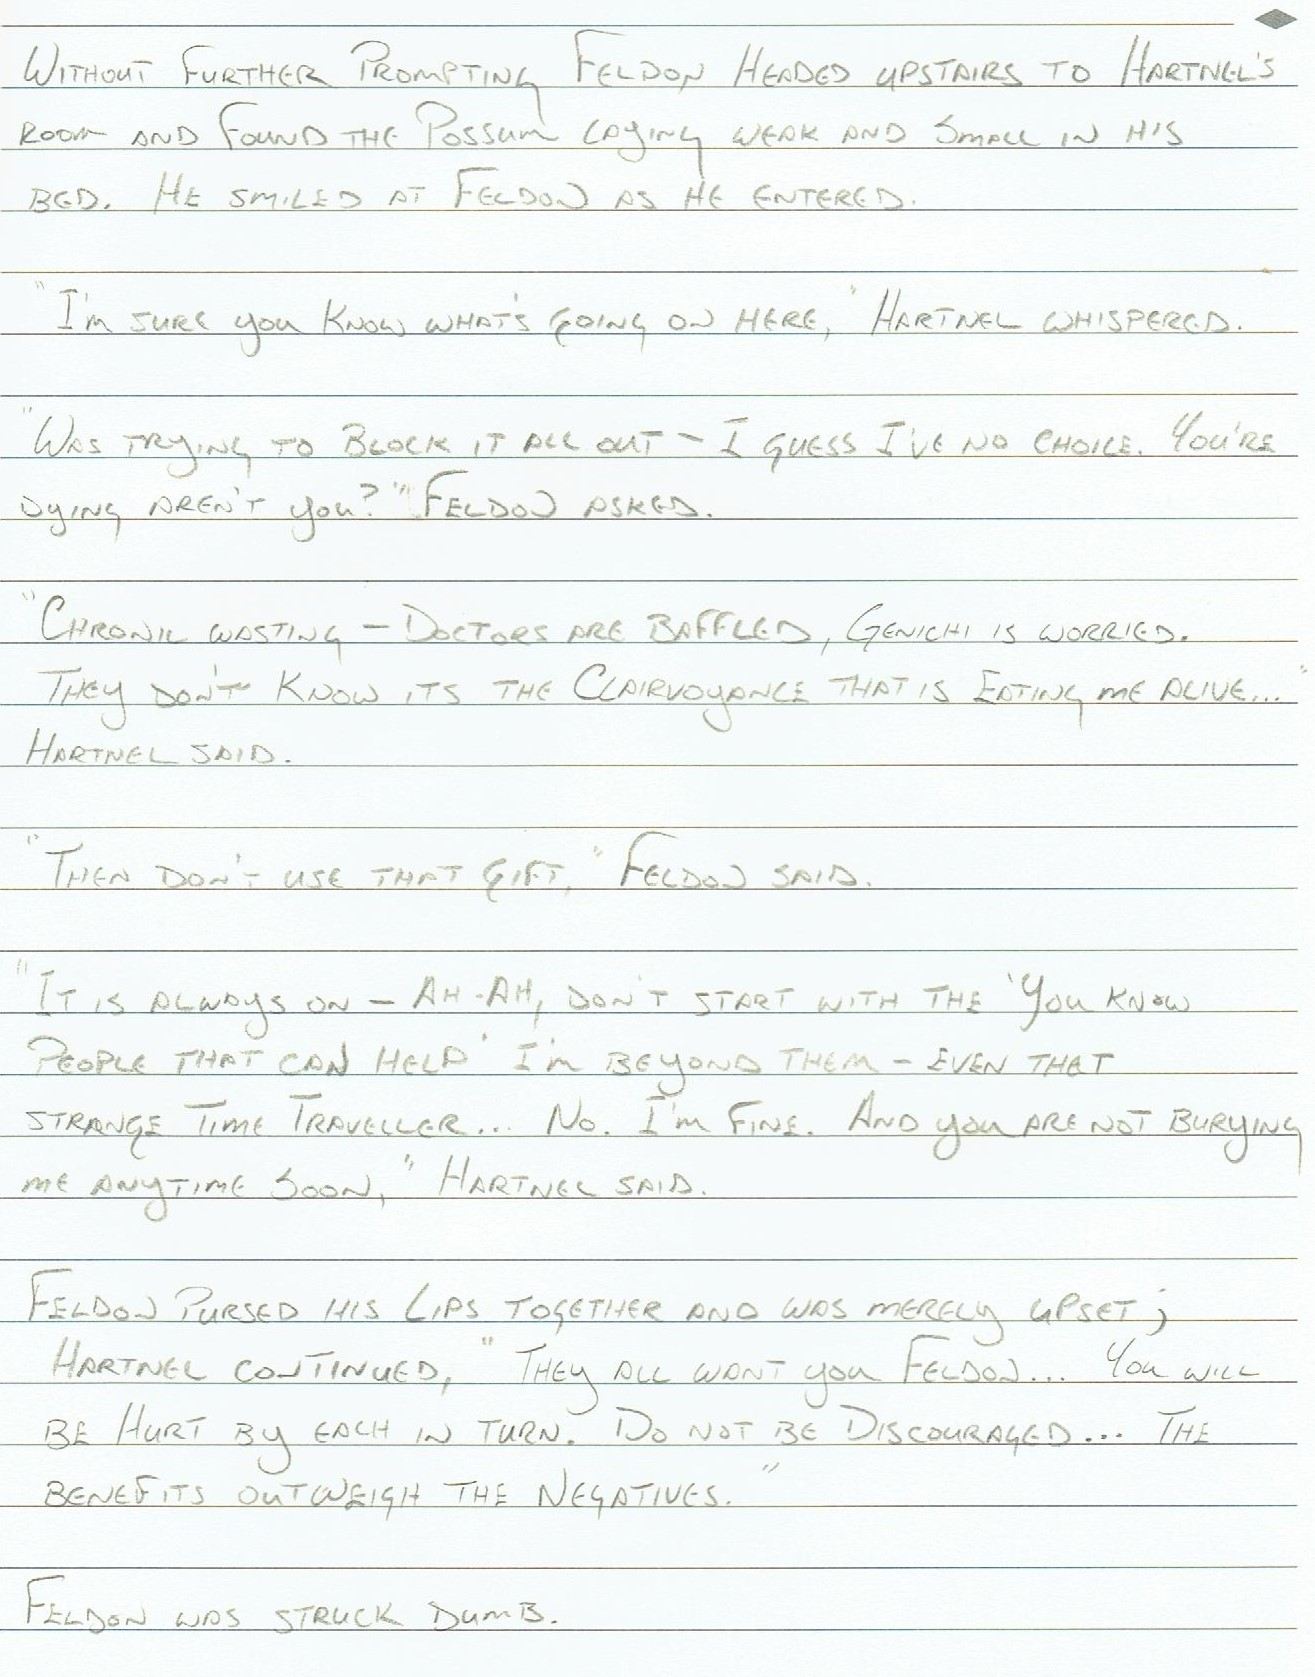 Without Further Prompting Feldon Headed upstairs to Hartnel's
room and Found the Possum laying weak and small in his
bed. He smiled at Feldon as he entered.
"I'm sure you know what's going on here," Hartnel whispered.
"Was trying to Block it all out - I guess I've no choice. You're
dying aren't you?" Feldon asked.
"Chronic wasting - Doctors are baffled, Genichi is worried.
They don't know its the Clairvoyance that is Eating me alive..."
Hartnel said.
"Then don't use that gift," Feldon said.
"It is always on - Ah-Ah, don't start with the 'You know
People that can help' I'm beyond them - even that
strange Time Traveller... No. I'm fine. And you are not Burying
me anytime soon," Hartnel said.
Feldon Pursed his Lips together and was merely upset;
Hartnel continued, "They all want you Feldon... You will
be Hurt by each in turn. Do not be Discouraged... The
benefits outweigh the Negatives."
Feldon was struck dumb.